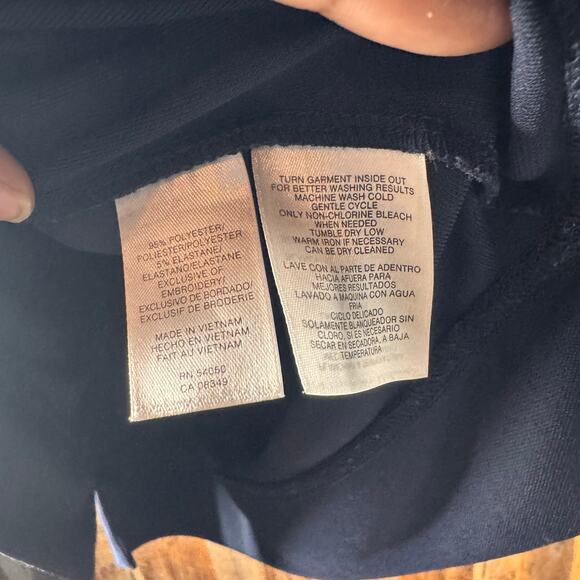 95% POLYESTER/
POLIESTER/POLYESTER
5% ELASTANE/
ELASTANO/ELASTANE
EXCLUSIVE OF
EMBROIDERY/
EXCLUSIVO DE BORDADO/
EXCLUSIF DE BRODERIE
MADE IN VIETNAM
HECHO EN VIETNAM
FAIT AU VIETNAM
RN 54050
CA 08349
TURN GARMENT INSIDE OUT
FOR BETTER WASHING RESULTS
MACHINE WASH COLD
GENTLE CYCLE
ONLY NON-CHLORINE BLEACH
WHEN NEEDED
TUMBLE DRY LOW
WARM IRON IF NECESSARY
CAN BE DRY CLEANED
LAVE CON AL PARTE DE ADENTRO
HACIA AFUERA PARA
MEJORES RESULTADOS
LAVADO A MAQUINA CON AGUA
FRIA
CICLO DELICADO
SOLAMENTE BLANQUEADOR SIN
CLORO, SI ES NECESARIO
SECAR EN SECADORA, A BAJA
TEMPERATURA